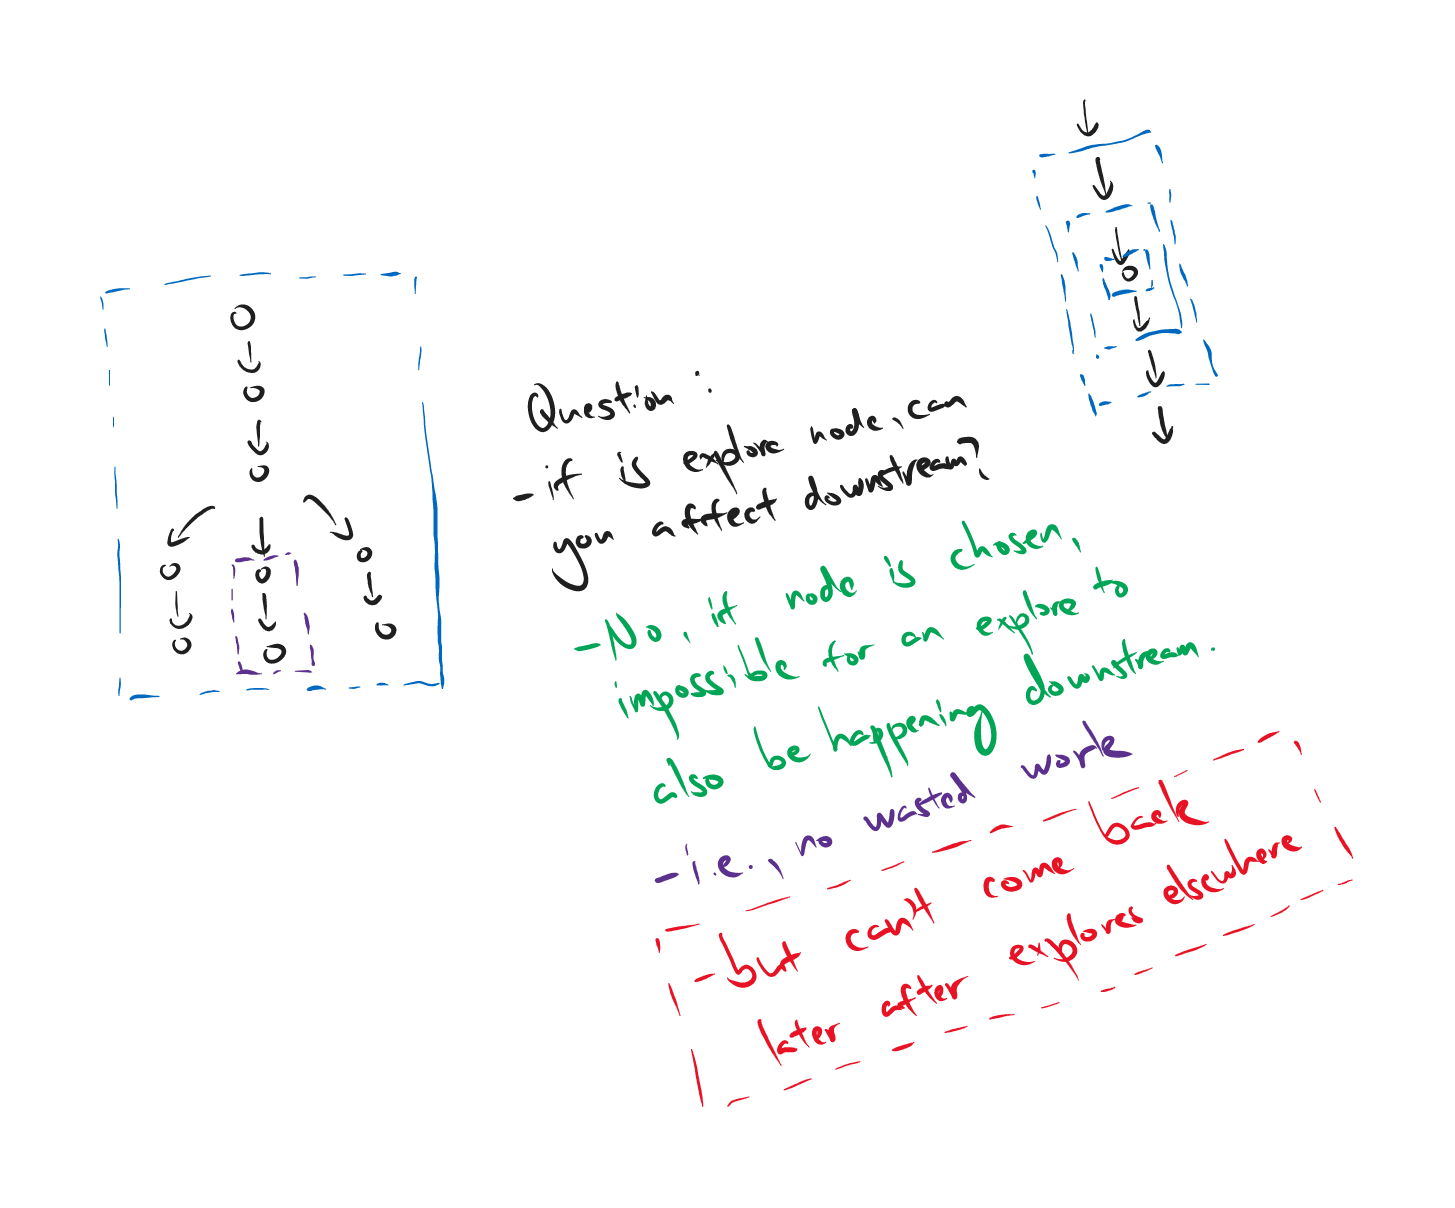 Question:
- if is explore node, can
you affect downstream?
- No, if node is chosen,
impossible for an explore to
also be happening downstream.
- i.e., no wasted work
- but can't come back
later after explores elsewhere